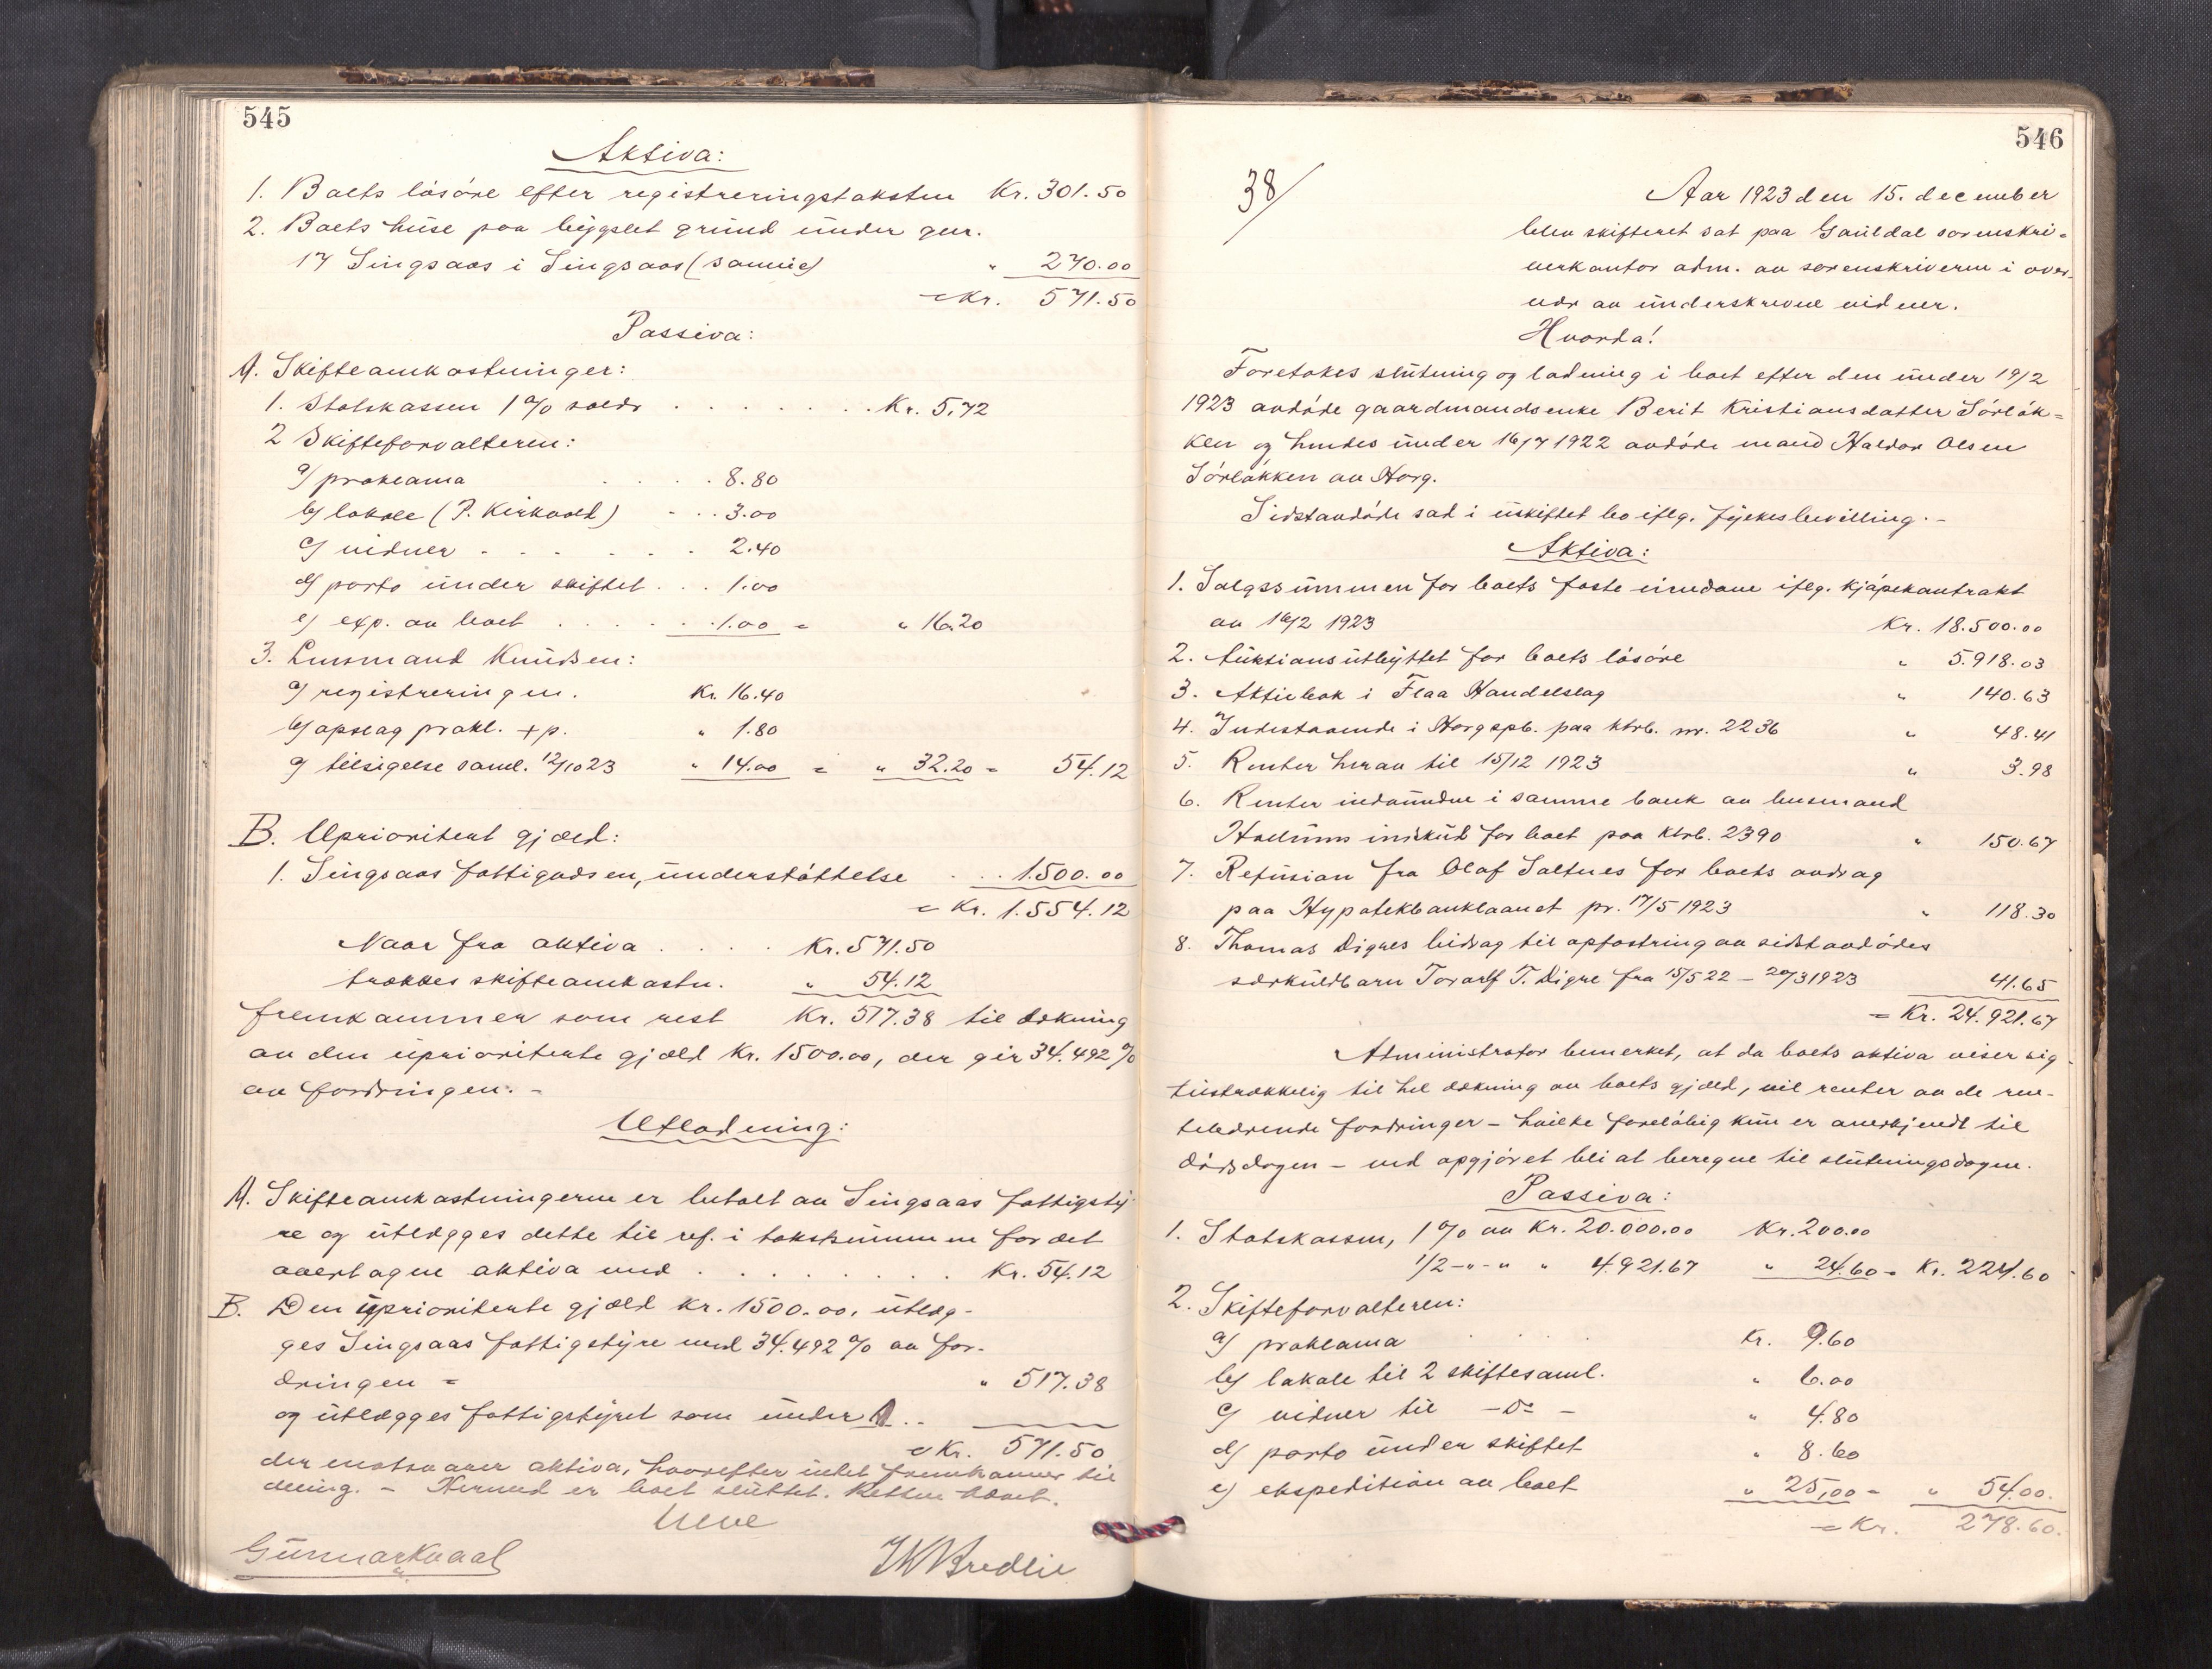 545
Aktiva:
1. Boets løsøre efter registreringstaksten Kr. 301.50
2. Boets huse paa bygslet grund under gnr.
17 Singsaas i Singsaas (samme) " 270.00
= Kr. 571.50
Passiva:
A. Skifteomkostninger:
1. Statskassen 1% sædv. . . . . . . Kr. 5,72
2 Skifteforvalteren:
a/ proklama . . . 8.80
b/ lokale (P. Kirkvold) . . . 3.00
c/ vidner . . . . . . 2.40
d/ porto under skiftet . . . 1.00
e/ exp. av boet . . . . . 1.00 = " 16.20
3. Lensmand Knudsen:
a/ registreringen. Kr. 16.40
b/ opslag prokl. + p. " 1.80
c/ tilsigelse saml. 12/10 23 " 14.00 = " 32.20 = 54.12
B. Uprioritert gjæld:
1. Singsaas fattigvæsen, understøttelse . . . 1.500.00
= Kr. 1.554.12
Naar fra aktiva . . . . Kr. 571.50
trækkes skifteomkostn. " 54.12
fremkommer som rest Kr. 517.38 til dækning
av den uprioriterte gjæld Kr. 1500.00, der gir 34.492 %
av fordringen. -
Utlodning:
A. Skifteomkostningerne er betalt av Singsaas fattigsty-
re og utlægges dette til ref. i takstsummen for det
overtagne aktiva med . . . . . . . . Kr. 54.12
B. Den uprioriterte gjæld Kr. 1500.00, utlæg-
ges Singsaas fattigstyre med 34.492 % av for-
dringen = " 517.38
og utlægges fattigstyret som under A. .
= Kr. 571.50
der motsvarer aktiva, hvorefter intet fremkommer til
deling. - Hermed er boet sluttet. Retten hævet.
Gunnar Kvaal
546
38/
Aar 1923 den 15. december
blev skifteret sat paa Gauldal sorenskri-
verkontor adm. av sorenskriveren i over-
vær av underskrevne vidner.
Hvorda!
Foretokes slutning og lodning i boet efter den under 19/2
1923 avdøde gaardmandsenke Berit Kristiansdatter Sørløk-
ken og hendes under 16/7 1922 avdøde mand Haldor Olsen
Sørløkken av Horg.
Sidstavdøde sad i uskiftet bo iflg. fylkesbevilling. -
Aktiva:
1. Salgssummen for boets faste eiendom iflg. kjøpekontrakt
av 16/2 1923 Kr. 18.500.00
2. Auktionsutbyttet for boets løsøre " 5.918.03
3. Aktiebok i Flaa Handelslag " 140.63
4. Indestaaende i Horg spb. paa ktrb. nr. 2236 " 48.41
5. Renter herav til 15/12 1923 " 3.98
6. Renter indvundne i samme bank av lensmand
indskud for boet paa ktrb. 2390 " 150.67
7. Refusion fra Olaf Saltnes for boets avdrag
paa Hypotekbanklaanet pr. 17/5 1923 " 118.30
8. Thomas Digres bidrag til opfostring av sidstavdødes
særkuldbarn Toralf T. Digre fra 15/5 22 - 20/3 1923 41.65
= Kr. 24.921.67
Administrator bemerket, at da boets aktiva viser sig
tilstrækkelig til hel dækning av boets gjæld, vil renter av de ren-
tebærende fordringer - hvilke foreløbig kun er anerkjendt til
dødsdagen - ved opgjøret bli at beregne til slutningsdagen.
Passiva:
1. Statskassen, 1% av Kr. 20.000.00 Kr. 200.00
1/2 - " - " " 4.921.67 " 24.60 = Kr. 224.60
2. Skifteforvalteren:
a/ proklama . . . . Kr. 9.60
b/ lokale til 2 skiftesaml. " 6.00
c/ vidner til - do - " 4.80
d/ porto under skiftet " 8.60
e/ ekspedition av boet " 25,00 = " 54.00.
= Kr. 278.60.